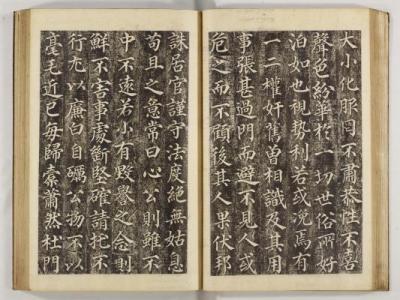 大小化服罔不肅恭性不喜
聲色紛華於一切世俗所好
泊如也視勢利若或浼焉有
一二權奸舊曾相識及其用
事張甚過門而避不見人或
危之而不顧後其人果伏邦
誅居官謹守法度絕無姑息
苟且之意常曰心公則雖不
中不遠若小有毀譽之念則
鮮不害事處斷堅確請托不
行尤以廉白自礪公物不以
毫毛近己每歸橐蕭然杜門